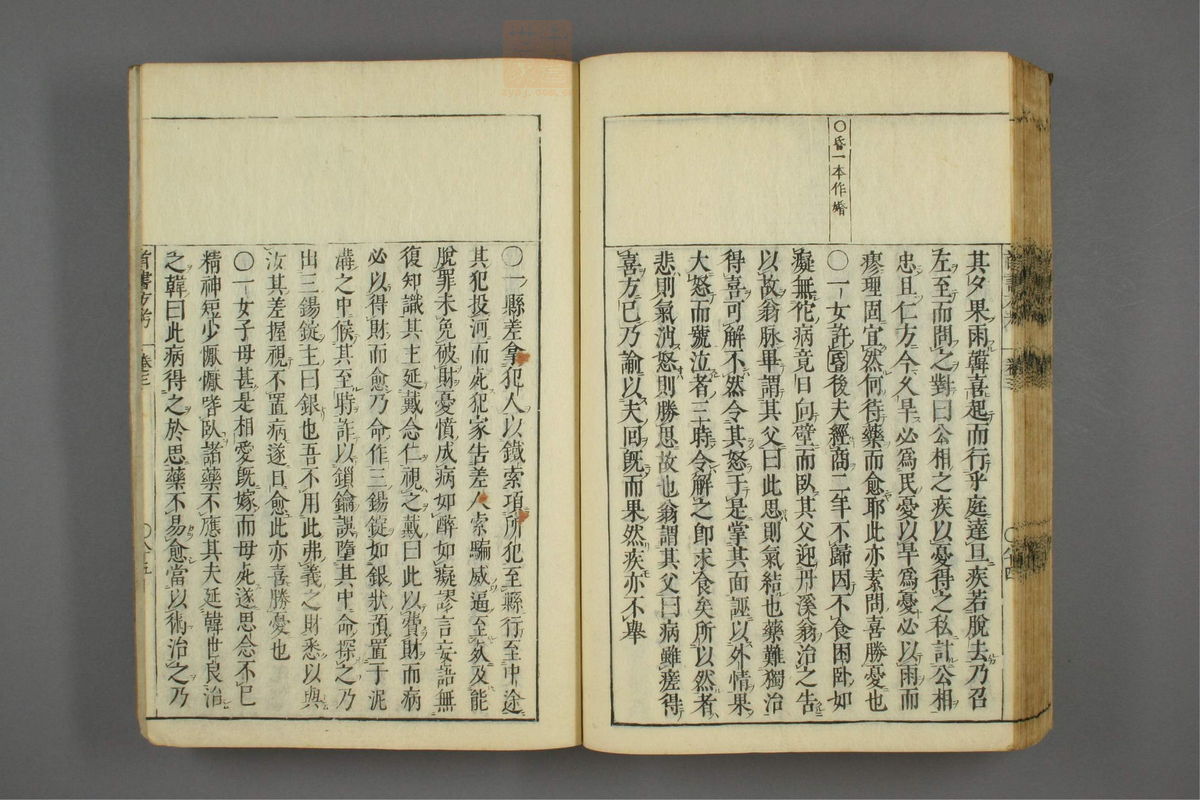 〇昏一本作婚
其夕果雨韓喜起而行乎庭達旦疾若脫去乃召
左至而問之對曰公相之疾以憂得之私計公相
忠且仁方今久旱必爲民憂以旱爲憂必以雨而
瘳理固宜然何待藥而愈耶此亦素問喜勝憂也
〇一女許昏後夫經商二年不歸因不食困卧如
癡無佗病竟日向壁而臥其父迎丹溪翁治之告
以故翁脉畢謂其父曰此思則氣結也藥難獨治
得喜可解不然令其怒于是掌其面誣以外情果
大怒而號泣者三時令解之卽求食矣所以然者
悲則氣消怒則勝思故也翁謂其父曰病雖瘥得
喜方已乃諭以夫回旣而果然疾亦不舉
〇一縣差拿犯人以鐵索項所犯至縣行至中途
其犯投河而死犯家告差人索騙威逼至死及能
脫罪未免破財憂憤成病如醉如癡謬言妄語無
復知識其主延戴念仁視之戴曰此以費財而病
必以得財而愈乃命作三錫錠如銀狀預置于泥
溝之中候其至時詐以鎖鑰誤墮其中命探之乃
出三錫錠主曰銀也吾不用此弗義之財悉以與
汝其差握視不置病遂日愈此亦喜勝憂也
〇一女子母甚是相愛旣嫁而母死遂思念不已
精神短少厭厭嗜臥諸藥不應其夫延韓世良治
之韓曰此病得之於思藥不易愈當以術治之乃
卷三
〇八十五